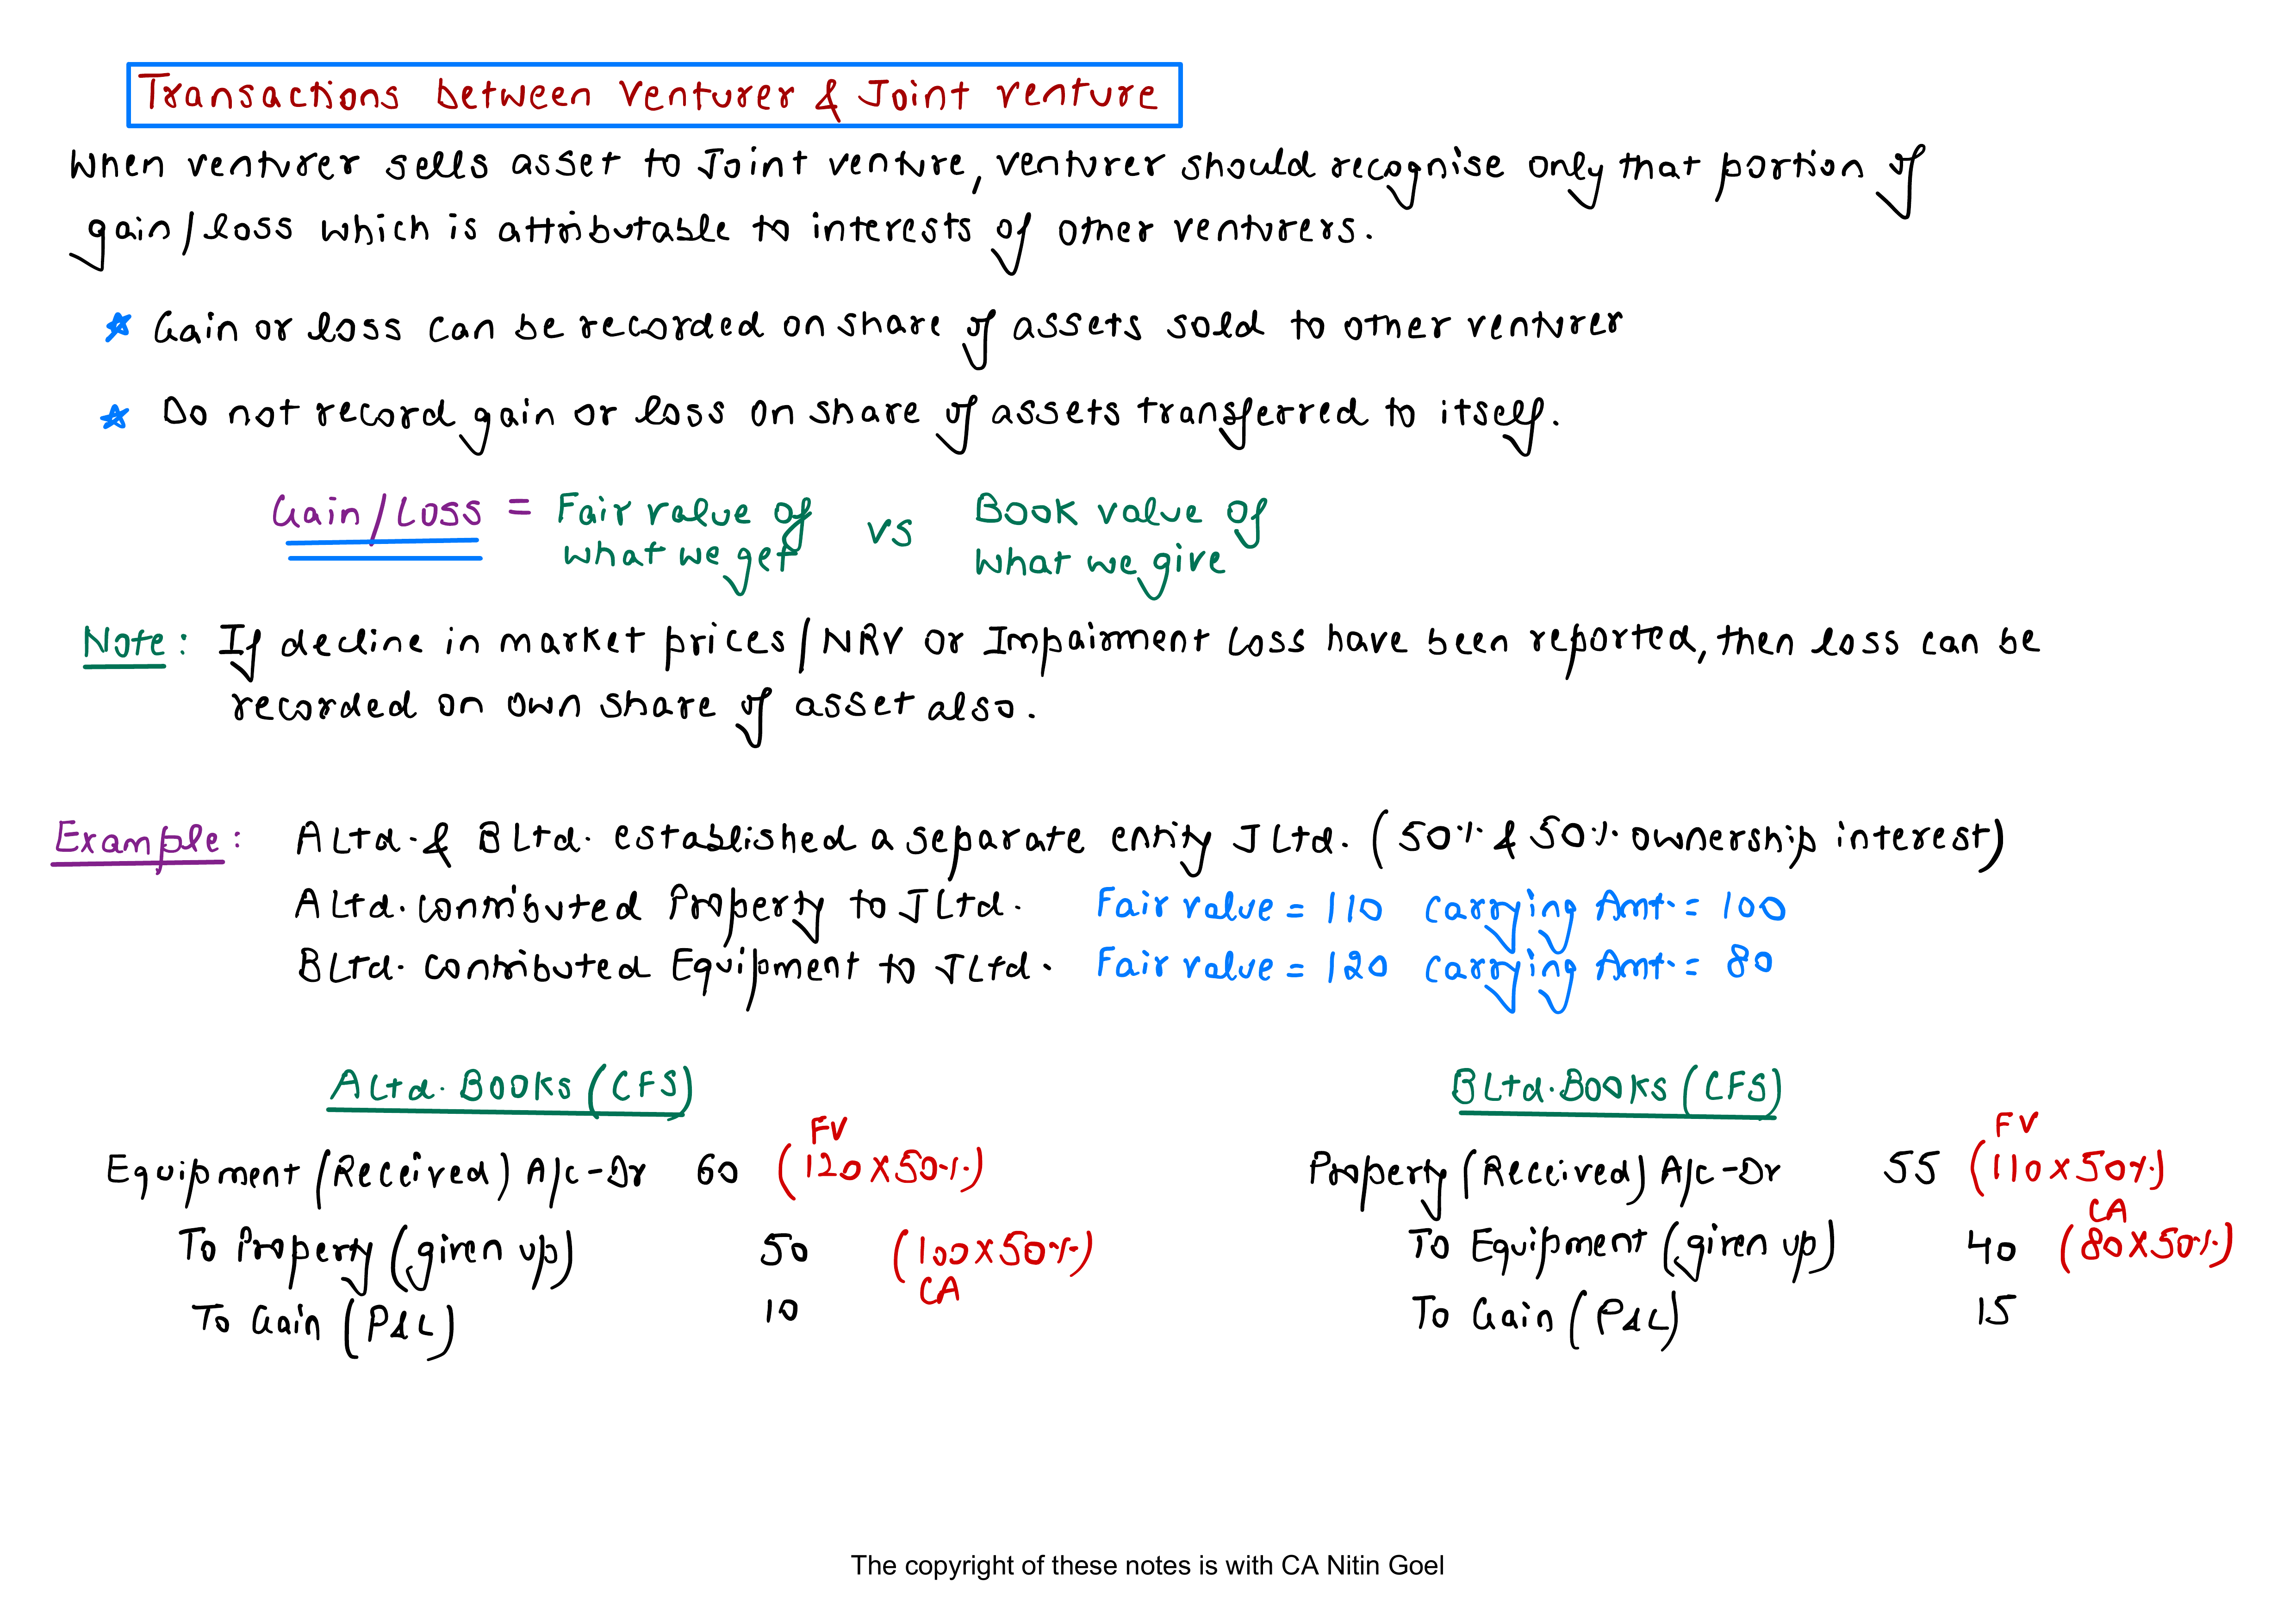 Transactions between Venturer & Joint venture
When venturer sells asset to Joint venture, venturer should recognise only that portion of
gain/loss which is attributable to interests of other venturers.
Gain or loss can be recorded on share of assets sold to other venturer
Do not record gain or loss on share of assets transferred to itself.
Gain/Loss = Fair value of what we get vs Book value of what we give
Note: If decline in market prices/NRV or Impairment Loss have been reported, then loss can be
recorded on own share of asset also.
Example: A Ltd. & B Ltd. established a separate entity J Ltd. (50% & 50% ownership interest)
A Ltd. contributed Property to J Ltd. Fair value = 110 Carrying Amt. = 100
B Ltd. contributed Equipment to J Ltd. Fair value = 120 Carrying Amt. = 80
A Ltd. Books (CFS)
FV
Equipment (Received) A/c - Dr 60 (120 x 50%)
To Property (given up) 50 (100 x 50%)
CA
To Gain (P&L) 10
B Ltd. Books (CFS)
FV
Property (Received) A/c - Dr 55 (110 x 50%)
CA
To Equipment (given up) 40 (80 x 50%)
To Gain (P&L) 15
The copyright of these notes is with CA Nitin Goel